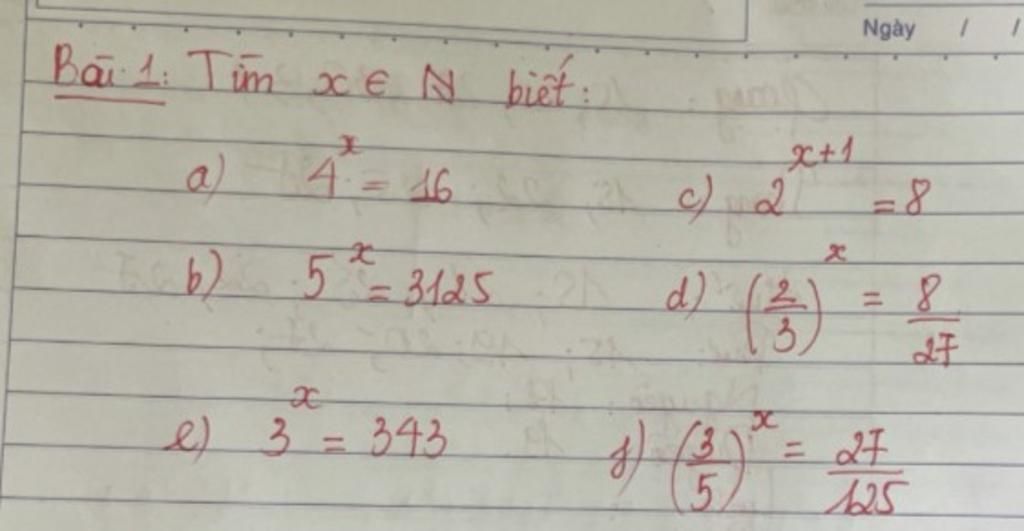 Ngày / /
Bài 1: Tìm x ∈ N biết:
a) 4^x = 16
c) 2^{x+1} = 8
b) 5^x = 3125
d) (2/3)^x = 8/27
e) 3^x = 343
f) (3/5)^x = 27/125